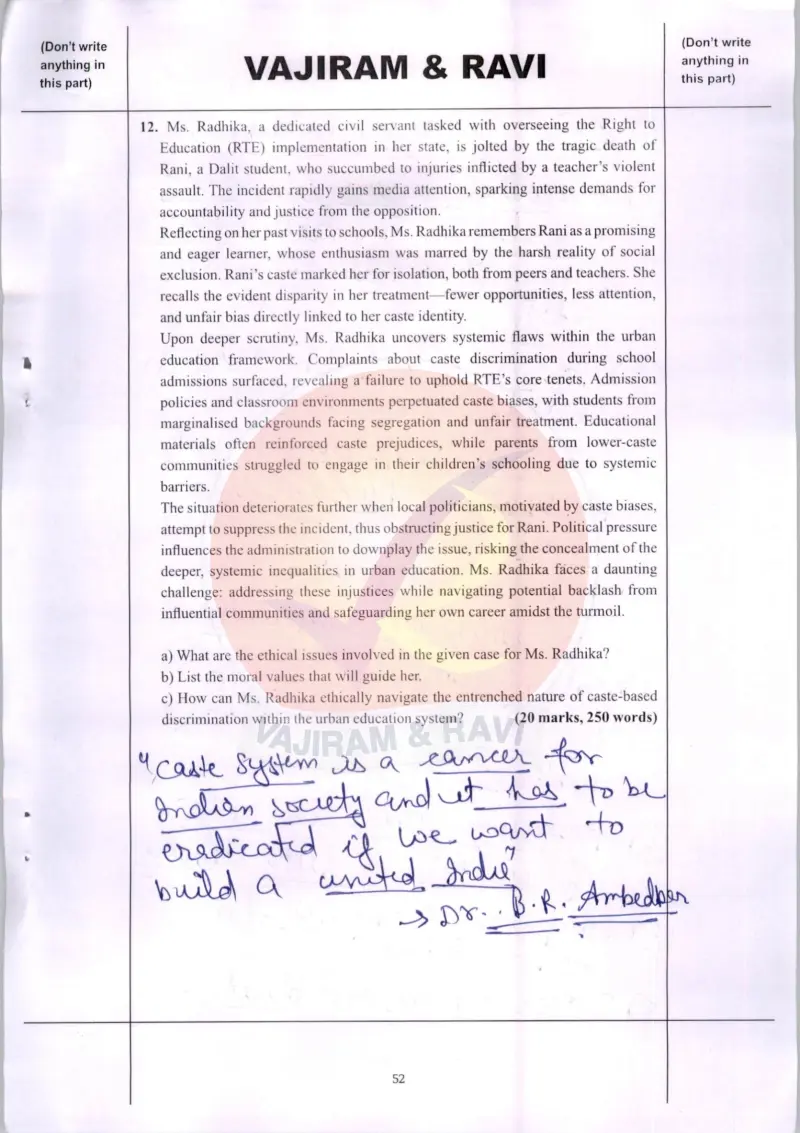 (Don't write
anything in
this part)
VAJIRAM & RAVI
(Don't write
anything in
this part)
12. Ms. Radhika, a dedicated civil servant tasked with overseeing the Right to
Education (RTE) implementation in her state, is jolted by the tragic death of
Rani, a Dalit student, who succumbed to injuries inflicted by a teacher's violent
assault. The incident rapidly gains media attention, sparking intense demands for
accountability and justice from the opposition.
Reflecting on her past visits to schools, Ms. Radhika remembers Rani as a promising
and eager learner, whose enthusiasm was marred by the harsh reality of social
exclusion. Rani's caste marked her for isolation, both from peers and teachers. She
recalls the evident disparity in her treatment—fewer opportunities, less attention,
and unfair bias directly linked to her caste identity.
Upon deeper scrutiny, Ms. Radhika uncovers systemic flaws within the urban
education framework. Complaints about caste discrimination during school
admissions surfaced, revealing a failure to uphold RTE's core tenets. Admission
policies and classroom environments perpetuated caste biases, with students from
marginalised backgrounds facing segregation and unfair treatment. Educational
materials often reinforced caste prejudices, while parents from lower-caste
communities struggled to engage in their children's schooling due to systemic
barriers.
The situation deteriorates further when local politicians, motivated by caste biases,
attempt to suppress the incident, thus obstructing justice for Rani. Political pressure
influences the administration to downplay the issue, risking the concealment of the
deeper, systemic inequalities in urban education. Ms. Radhika faces a daunting
challenge: addressing these injustices while navigating potential backlash from
influential communities and safeguarding her own career amidst the turmoil.
a) What are the ethical issues involved in the given case for Ms. Radhika?
b) List the moral values that will guide her.
c) How can Ms. Radhika ethically navigate the entrenched nature of caste-based
discrimination within the urban education system? (20 marks, 250 words)
VAJIRAM & RAVI
"Caste System is a cancer for
Indian society and it has to be
eradicated if we want to
build a united India"
→ Dr. B.R. Ambedkar
52